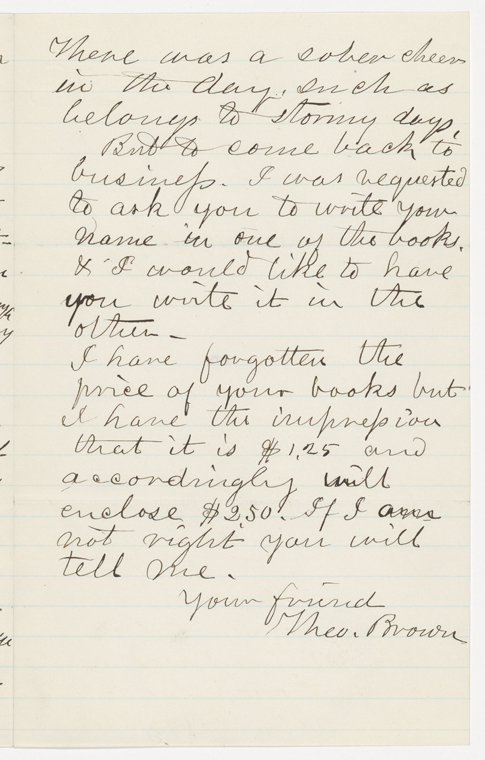 There was a sober cheer
in the day, such as
belongs to stormy days,
But to come back to
business. I was requested
to ask you to write your
name in one of the books.
& I would like to have
you write it in the
other –
I have forgotten the
price of your books but
I have the impression
that it is $1,25 and
accordingly will
enclose $2,50. If I am
not right you will
tell me.
Your friend
Theo. Brown